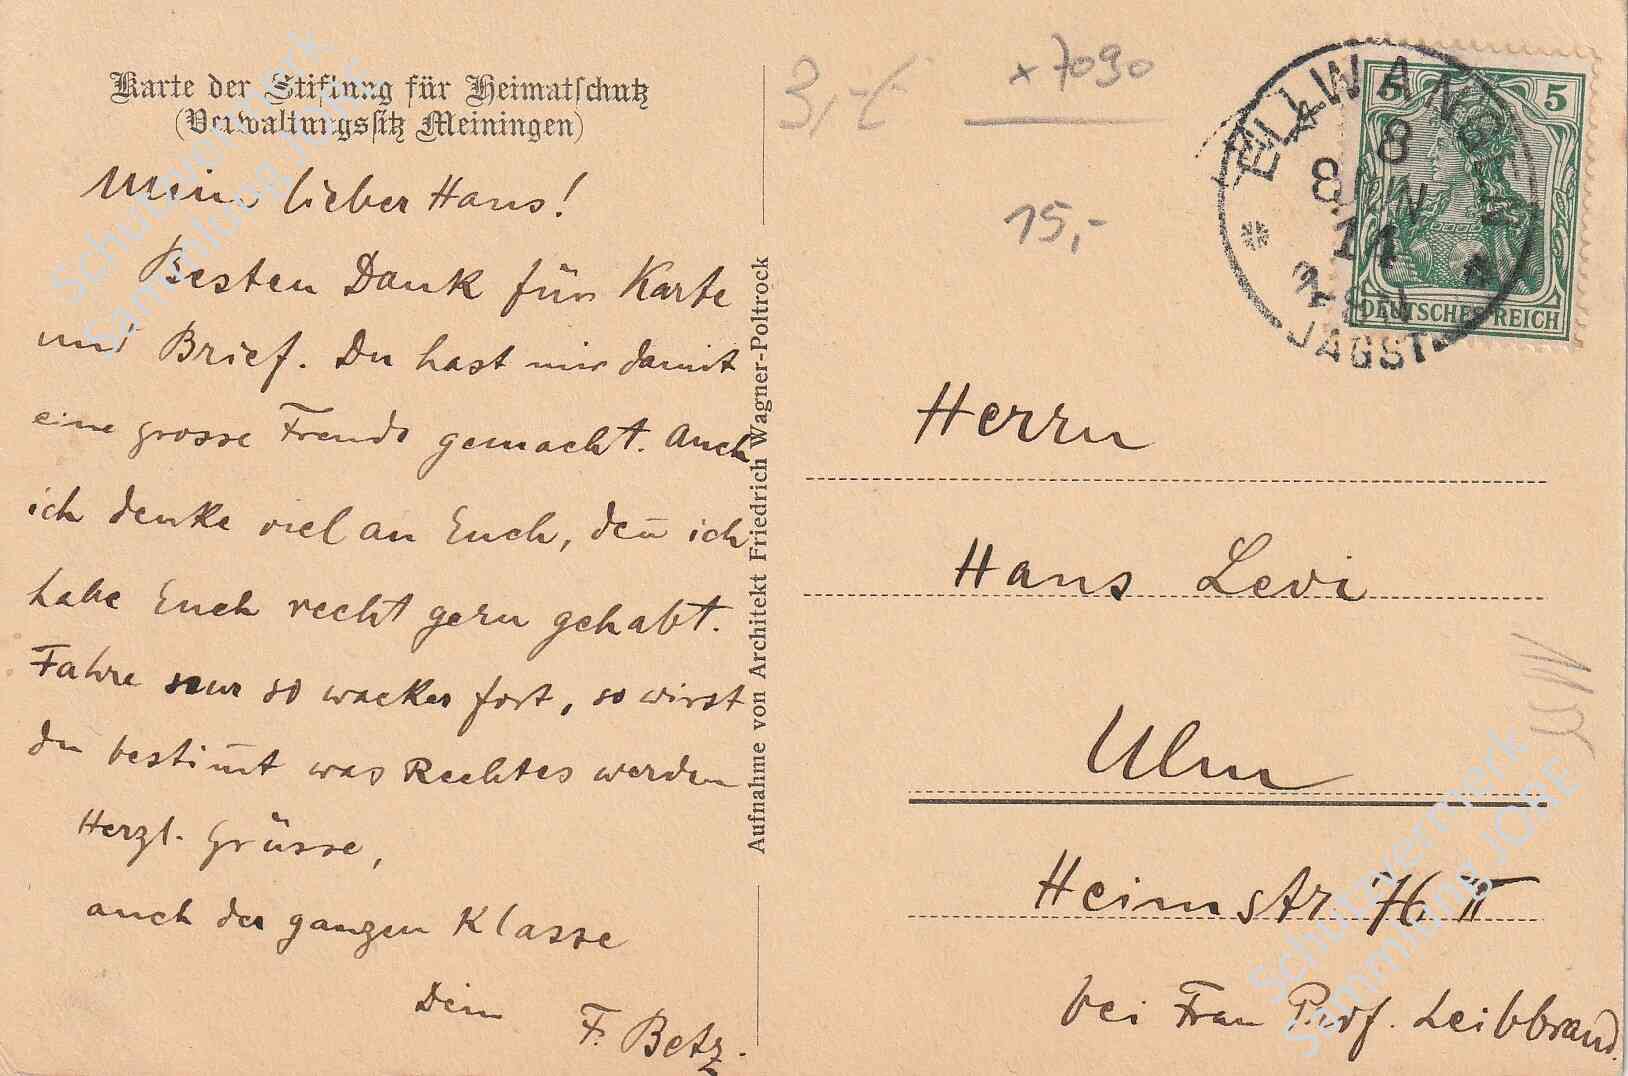 Karte der Stiftung für Heimatschutz
(Verwaltungssitz Meiningen)
Mein lieber Hans!
Besten Dank für Karte
und Brief. Du hast mir damit
eine grosse Freude gemacht. Auch
ich denke viel an Euch, deñ ich
habe Euch recht gern gehabt.
Fahre nur so wacker fort, so wirst
du bestim̄t was Rechtes werden
Herzl. Grüsse,
auch der ganzen Klasse
Dein
F. Betz.
Aufnahme von Architekt Friedrich Wagner-Poltrock
3,-€
x 7090
15,-
ELLWANGEN
8
8 JUN
14
JAGST
5 5
DEUTSCHES REICH
Herrn
Hans Levi
Ulm
Heimstr. II
bei Frau Prof. Leibbrand.
Schutzvermerk
Sammlung JORE
Schutzvermerk
Sammlung JORE